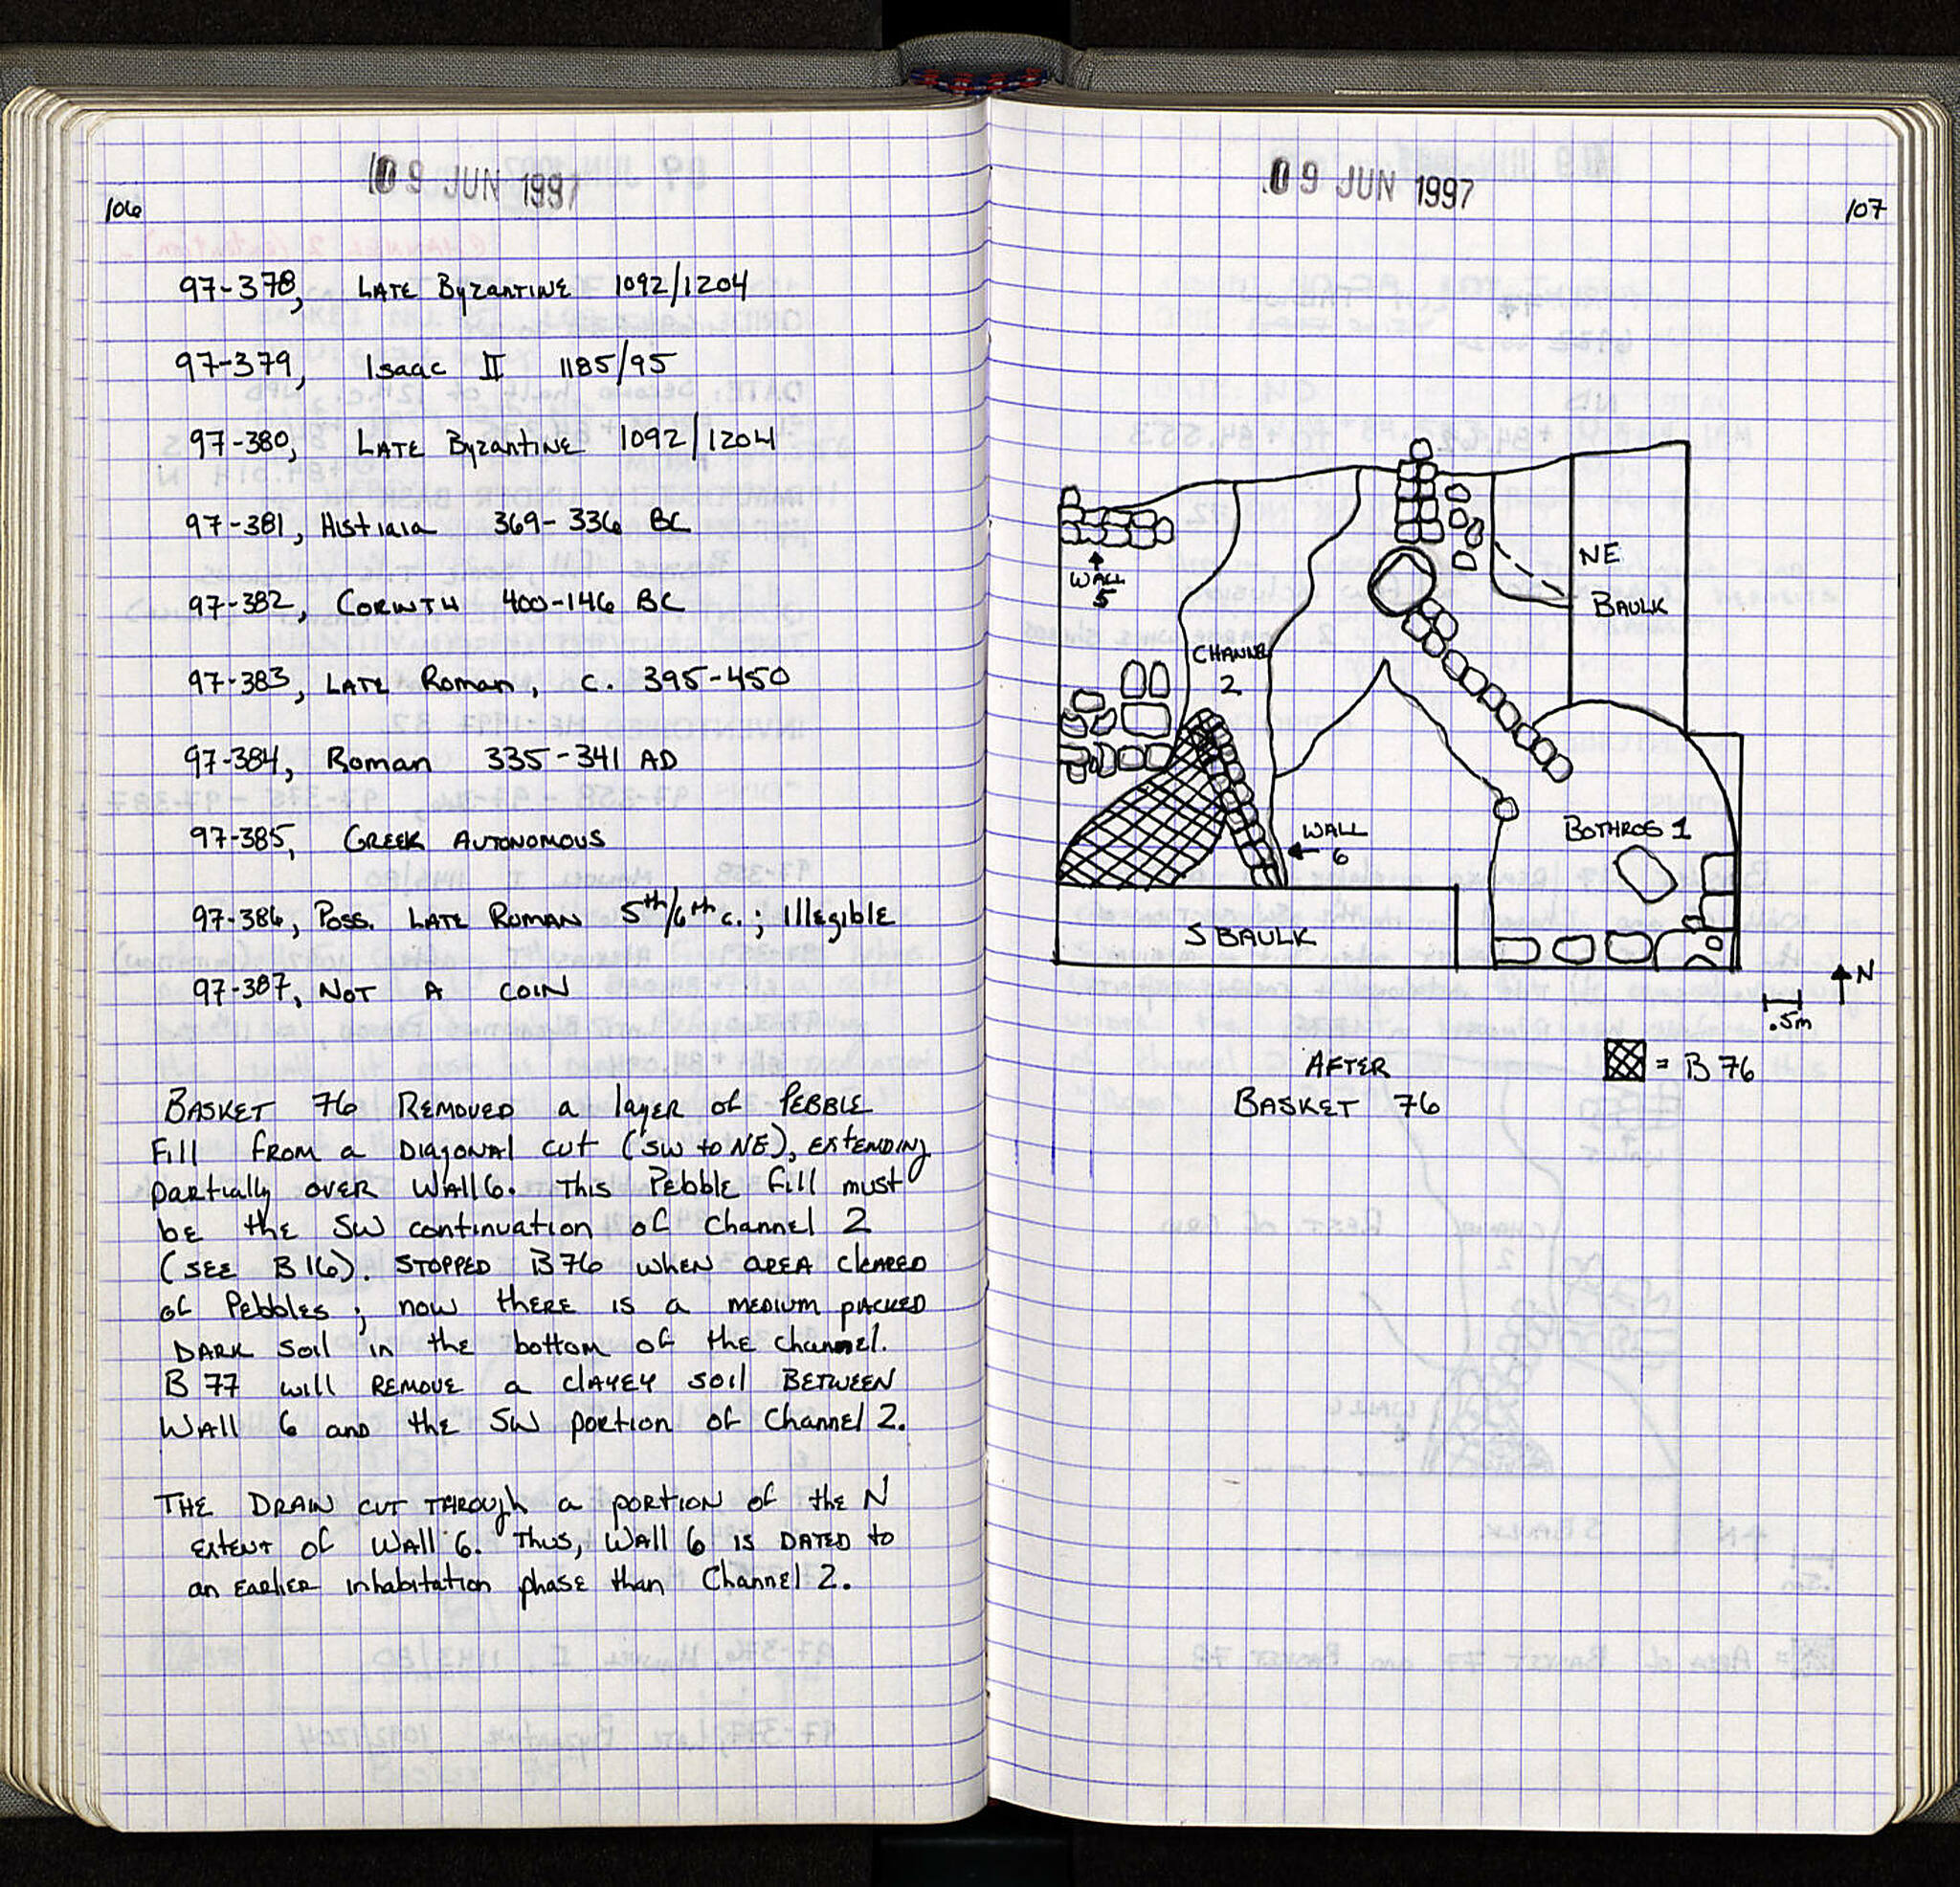 09 JUN 1997
106
97-378, LATE Byzantine 1092/1204
97-379, Isaac II 1185/95
97-380, LATE Byzantine 1092/1204
97-381, Histiaia 369-336 BC
97-382, CORINTH 400-146 BC
97-383, LATE Roman, c. 395-450
97-384, Roman 335-341 AD
97-385, GREEK AUTONOMOUS
97-386, Poss. LATE ROMAN 5th/6th c.; Illegible
97-387, NOT A COIN
BASKET 76 REMOVED a layer of PEBBLE
Fill from a DIAGONAL cut (SW to NE), EXTENDING
partially OVER Wall 6. This Pebble fill must
be the SW continuation of Channel 2
(SEE B 16). STOPPED B 76 when AREA CLEARED
of Pebbles; now there is a medium packed
DARK soil in the bottom of the channel.
B 77 will REMOVE a clayey soil BETWEEN
Wall 6 and the SW portion of Channel 2.
THE DRAIN CUT THROUGH a PORTION of the N
EXTENT of Wall 6. Thus, Wall 6 is DATED to
an EARLIER inhabitation phase than Channel 2.
09 JUN 1997
107
WALL
5
NE
BAULK
CHANNEL
2
BOTHROS 1
WALL
6
S BAULK
N
.5m
AFTER
BASKET 76
= B 76